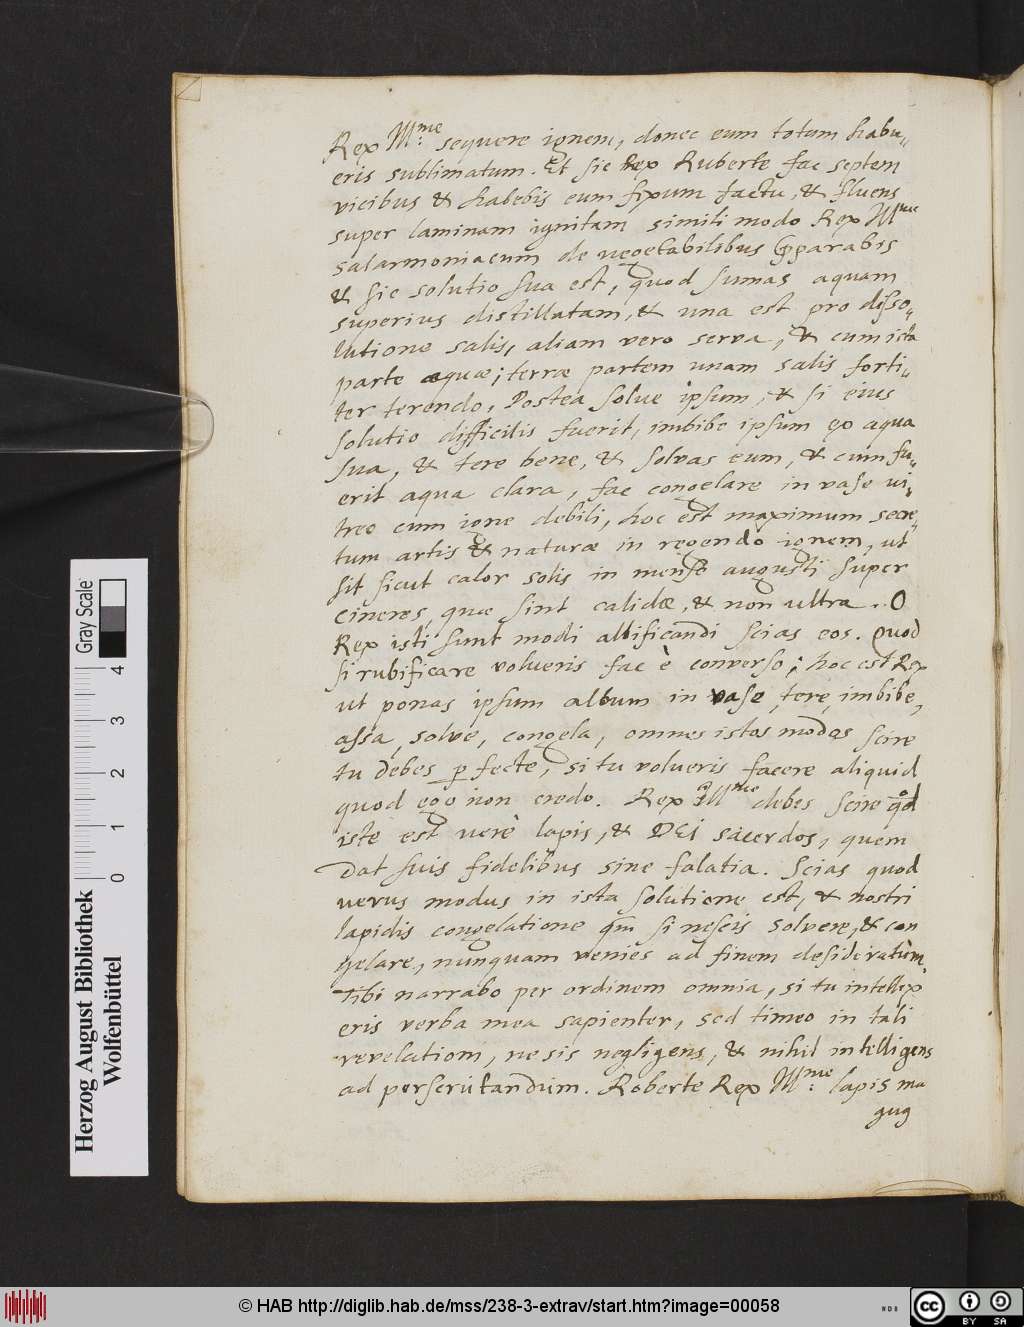 Rex Mme sequere ignem, donec eum totum habu„
eris sublimatum. Et sic Rex Ruberte fac septem
vicibus & habebis eum fixum factu, & fluens
super laminam ignitam simili modo Rex Mme
salarmoniacum de vegetabilibus pparabis
& sic solutio sua est, quod sumas aquam
superius distillatam, & una est pro disso„
lutione salis, aliam vero serva, & cum ista
parte aquæ; terræ partem unam salis forti„
ter terendo, Postea solve ipsum, & si eius
solutio difficilis fuerit, imbibe ipsum eo aqua
sua, & tere bene, & solvas eum, & cum fu„
erit aqua clara, fac congelare in vase vi„
treo cum igne debili, hoc est maximum secre„
tum artis & naturæ in regendo ignem, ut
sit sicut calor solis in mense augusti super
cineres, quæ sint calidæ, & non ultra. O
Rex isti sunt modi albificandi scias eos. Quod
si rubificare volueris fac è converso; hoc est Rex
ut ponas ipsum album in vase, tere, imbibe,
assa, solve, congela, omnes istos modos scire
tu debes pfecte, si tu volueris facere aliquid
quod ego non credo. Rex Mme debes scire qd
iste est verè lapis, & DEi sacerdos, quem
Dat suis fidelibus sine falatia. Scias quod
verus modus in ista solutione est, & nostri
lapidis congelatione qm si nescis solvere, & con
gelare, nunquam venies ad finem desideratum.
Tibi narrabo per ordinem omnia, si tu intellex
eris verba mea sapienter, sed timeo in tali
revelatiom, ne sis negligens, & nihil intelligens
ad perscrutandum. Roberte Rex Mme lapis ma
gug
Herzog August Bibliothek
Wolfenbüttel
0 1 2 3 4
Gray Scale
© HAB http://diglib.hab.de/mss/238-3-extrav/start.htm?image=00058
cc BY SA